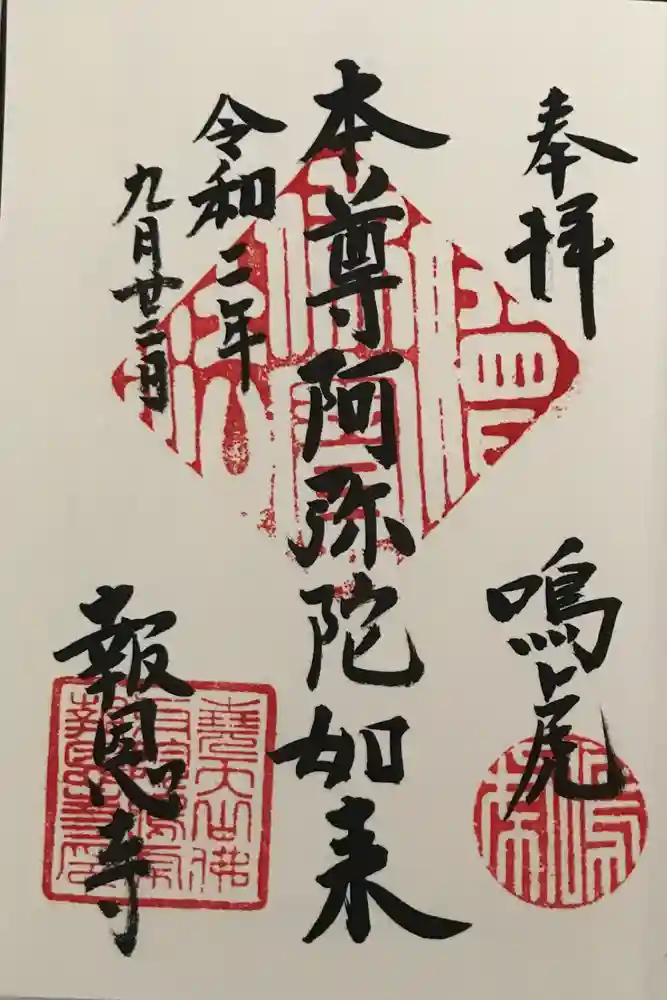 奉拝
鳴虎
本尊阿弥陀如来
令和二年
九月廿二日
報恩寺